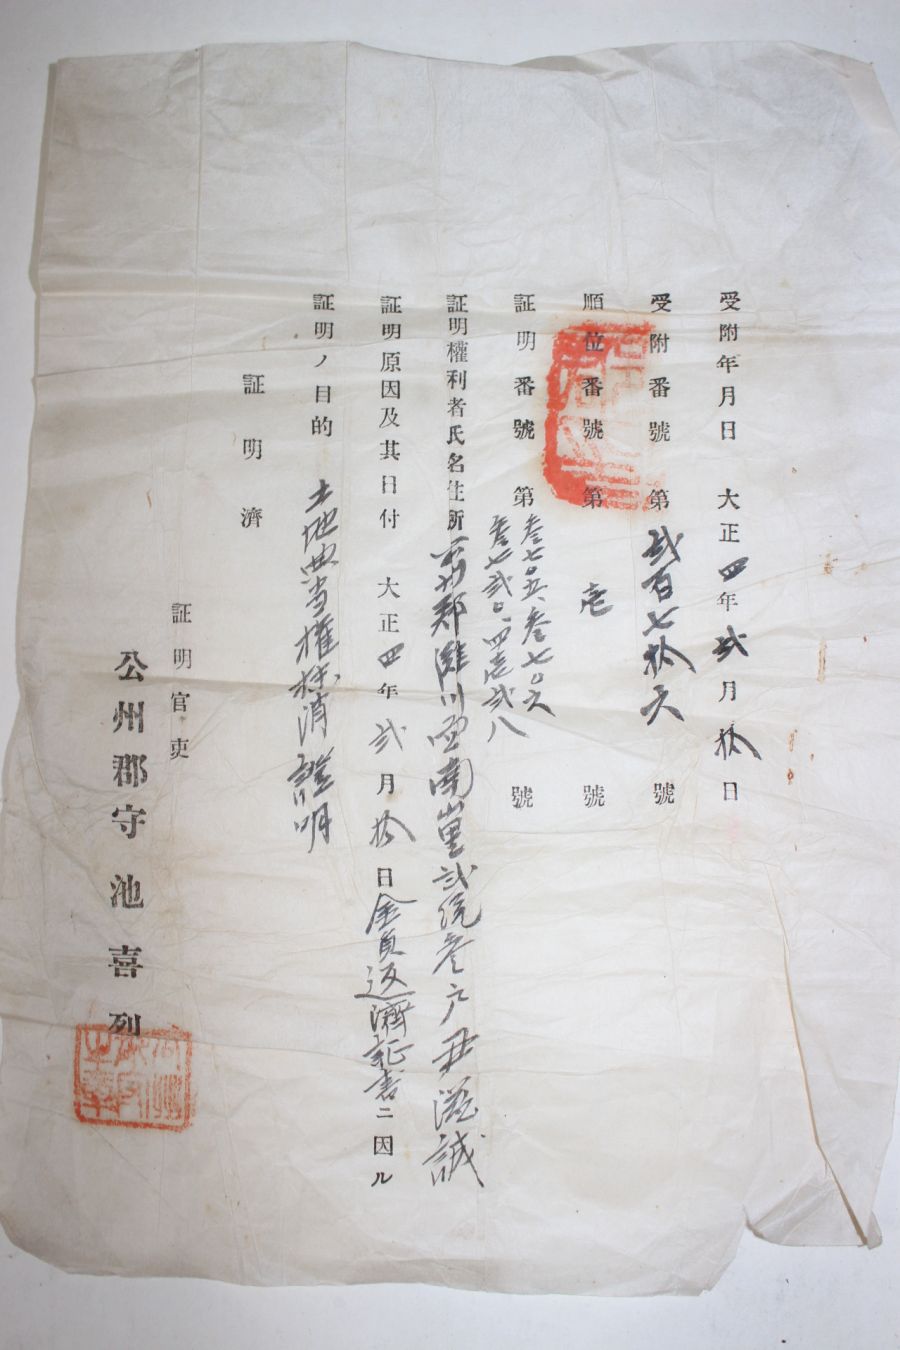 受附年月日 大正四年弐月拾日
受附番號 第弐百七拾六號
順位番號 第壱號
証明番號 第叁七〇五、叁七〇六
叁七弐〇、四壱弐八 號
証明權利者氏名住所 郡灘川面南山里弐統叁戶 尹滋誠
証明原因及其日付 大正四年弐月拾日金員返濟証書ニ因ル
証明ノ目的 土地典当權抹消證明
証明濟
証明官吏
公州郡守 池喜列